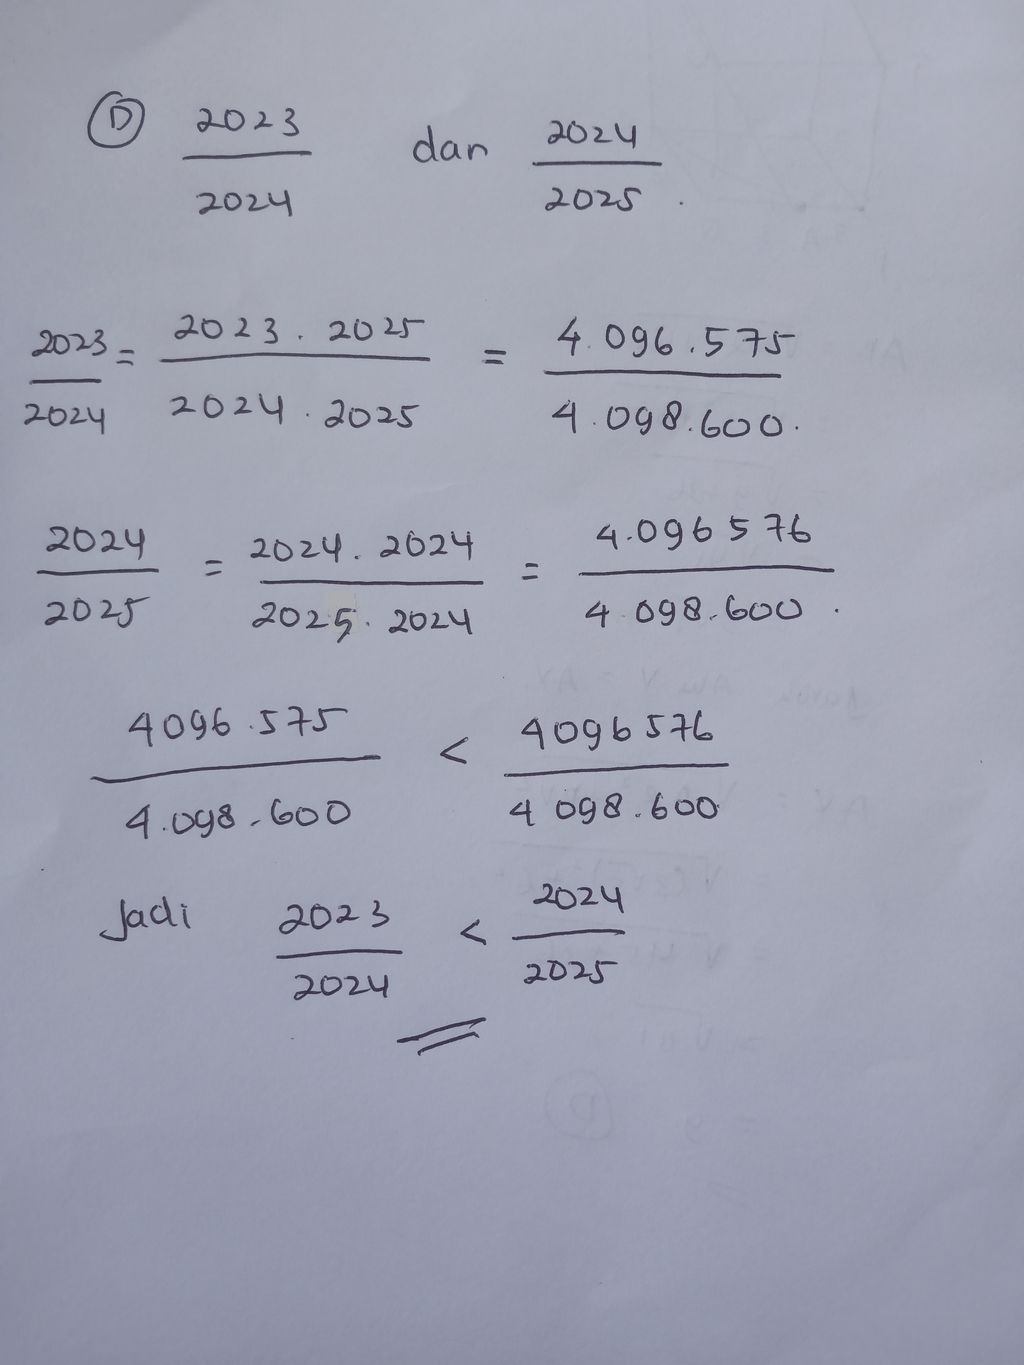 D 2023/2024 dan 2024/2025.
2023/2024 = 2023.2025/2024.2025 = 4.096.575/4.098.600.
2024/2025 = 2024.2024/2025.2024 = 4.096576/4 098.600.
4096.575/4.098.600 < 4096576/4 098.600
Jadi 2023/2024 < 2024/2025